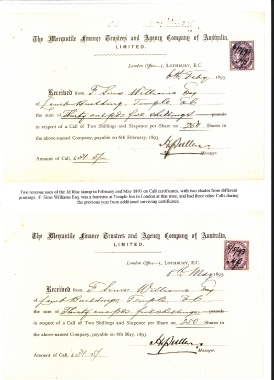 The Mercantile Finance Trustees and Agency Company of Australia,
LIMITED.
London Office—1, LOTHBURY, E.C.
6th Feby 1893
Received from F Sims Williams Esq
of Lamb Building, Temple E C
the sum of Thirty one pds five shillings pounds
in respect of a Call of Two Shillings and Sixpence per Share on 250 Shares in
the above-named Company, payable on 6th February, 1893.
Manager.
Amount of Call,
Two revenue uses of the 1d lilac stamp in February and May 1893 on Call certificates, with two shades from different
printings. F. Sims Williams Esq. was a barrister at Temple Inn in London at this time, and had three other Calls during
the previous year from additional surviving certificates.
The Mercantile Finance Trustees and Agency Company of Australia,
LIMITED.
London Office—1, LOTHBURY, E.C.
8th May 1893
Received from F Sims Williams Esq
of Lamb Buildings Temple E C
the sum of Thirty one pds five shillings pounds
in respect of a Call of Two Shillings and Sixpence per Share on 250 Shares in
the above-named Company, payable on 8th May, 1893.
Manager.
Amount of Call,